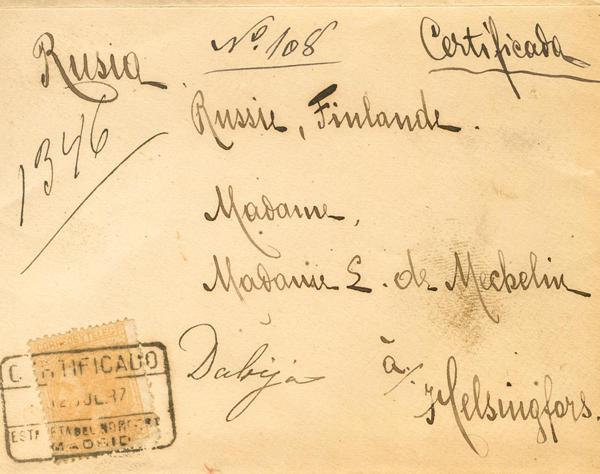 Rusia
Nº 108
Certificada
1346
Russie, Finlande.
Madame,
Madame E. de Meckelin
Dabija
à/ Helsingfors.
CORREOS Y TELEGS
CERTIFICADO
12 JUL 87
ESTAFETA DEL NOROESTE
MADRID